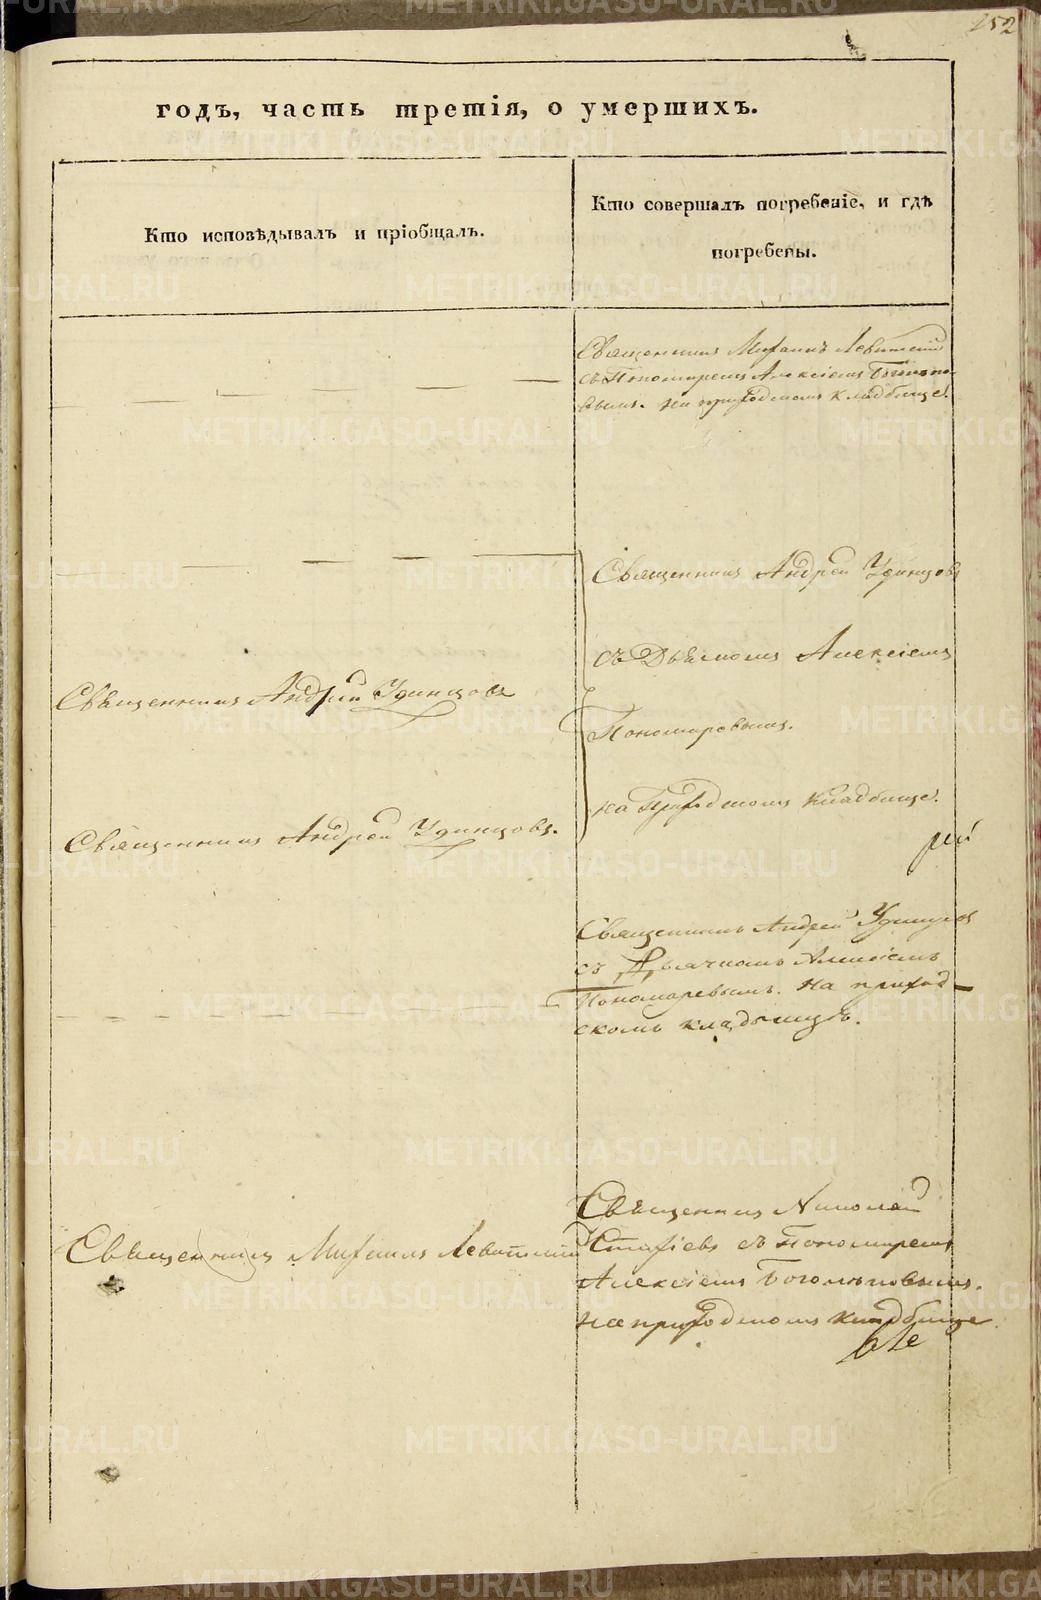 252
годъ, часть третія, о умершихъ.
Кто исповѣдывалъ и пріобщалъ.
Кто совершалъ погребеніе, и гдѣ
погребены.
Священникъ Михаилъ Левитскій
съ Пономаремъ Алексіемъ Богомпо-
вымъ. на приходскомъ кладбище.
Священникъ Андрей Удинцовъ
съ Дьякомъ Алексіемъ
Пономаревымъ.
на Приходскомъ кладбище.
Священникъ Андрей Удинцовъ
Священникъ Андрей Удинцовъ.
Священникъ Андрей Удинцовъ
съ Дьячкомъ Алексіемъ
Пономаревымъ. На приход-
скомъ кладбищѣ.
Священникъ Михаилъ Левитскій
Священникъ Николай
съ Пономаремъ
Алексіемъ
на приходскомъ кладбище.
METRIKI.GASO-URAL.RU